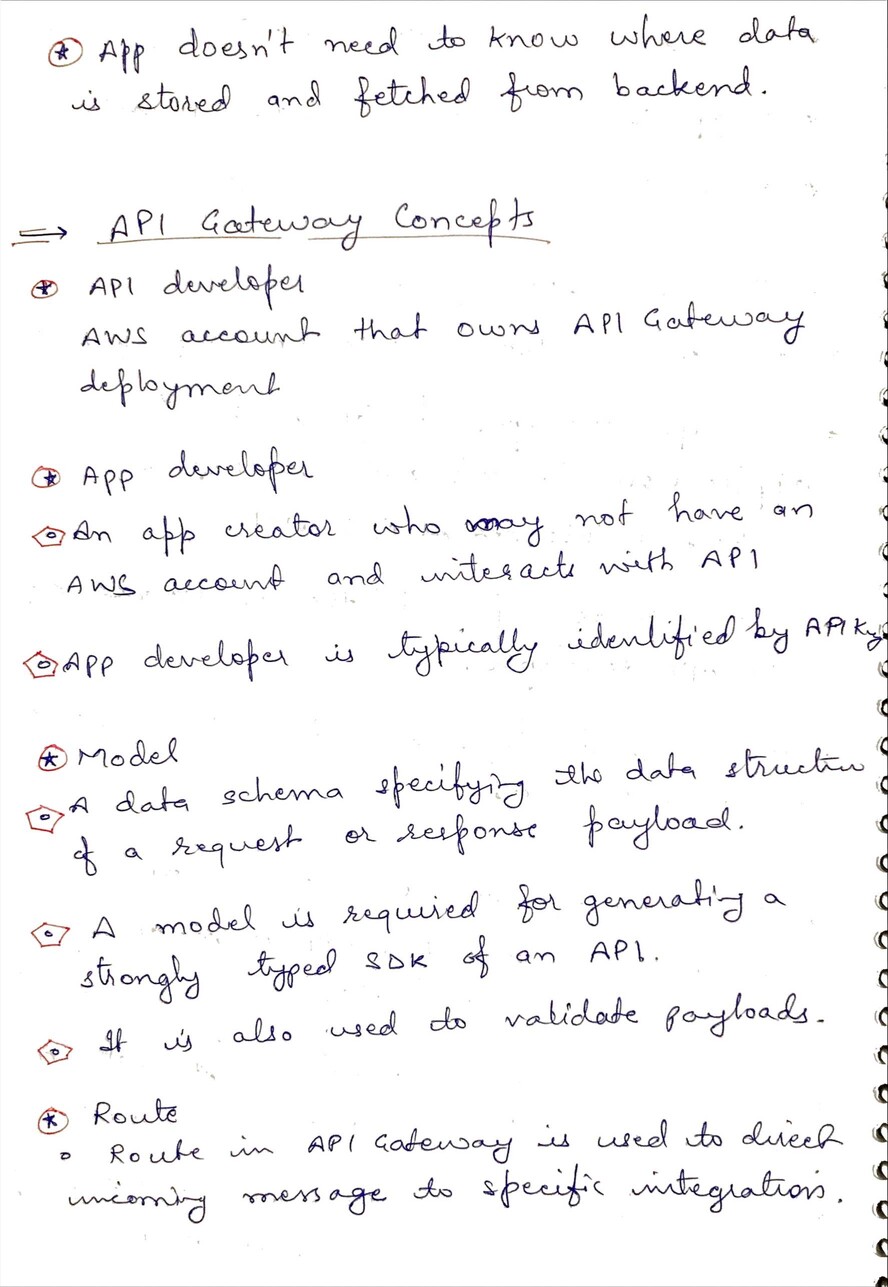 App doesn't need to know where data
is stored and fetched from backend.
⇒ API Gateway Concepts
API developer
AWS account that owns API Gateway
deployment
App developer
An app creator who may not have an
AWS account and interacts with API
App developer is typically identified by API Key
Model
A data schema specifying the data structure
of a request or response payload.
A model is required for generating a
strongly typed SDK of an API.
It is also used to validate payloads.
Route
Route in API Gateway is used to direct
incoming message to specific integration.